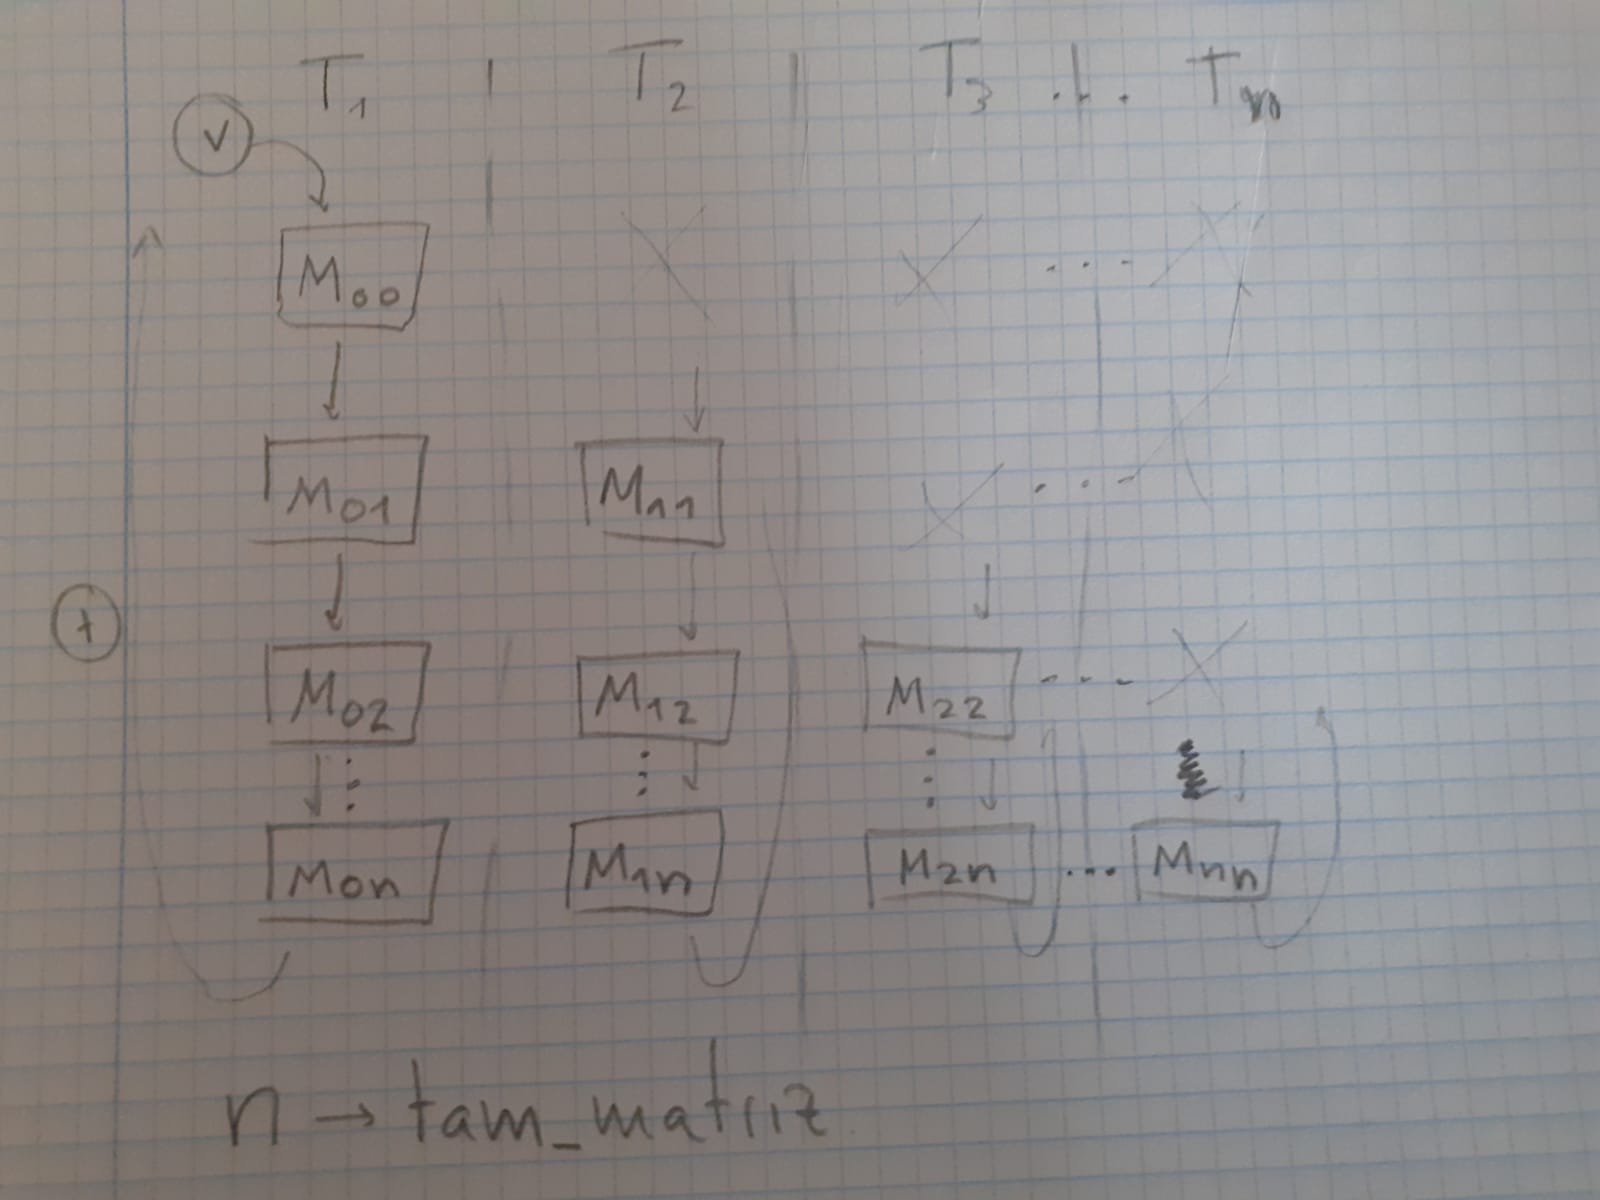 T₁ | T₂ | T₃ ... Tₙ
V
M₀₀ X X ... X
M₀₁ M₁₁ X ... X
M₀₂ M₁₂ M₂₂ ... X
M₀ₙ M₁ₙ M₂ₙ ... Mₙₙ
n → tam_matriz